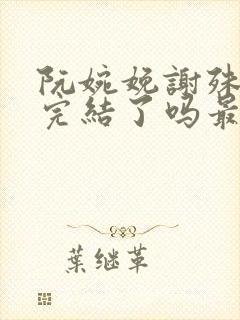 阮婉娩謝殊
完結了吗最
葉继革